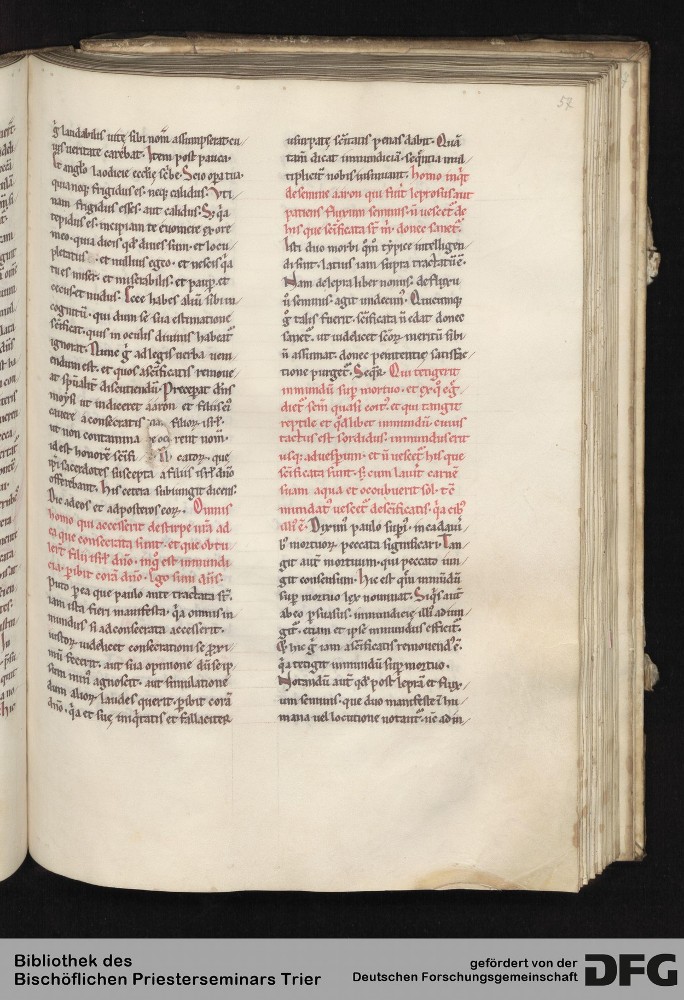 57
g̃ laudabilis uitę sibi nom̃ assumpserat cu
ius ueritate carebat. Item post pauca.
Et angl̃o laodicie ecclię sc̃be. Scio opa tua.
quia neq; frigidus es. neq; calidus. Uti
nam frigidus esses. aut calidus. Sꝫ q̃a
tepidus es. incipiam te euomere ex ore
meo. quia dicis qđ diues sum. et locu
pletatus. et nullius egeo. et nescis q̃a
tu es miser. et miserabilis. et paup. et
cecus. et nudus. Ecce habes aliũ sibi in
cognitũ. qui dum se sua estimatione
sc̃ificat. quis in oculis diuinis habeat᷑
ignorat. Nunc g̃ ad legis uerba ueni
endum est. et quos a sc̃ificatis remoue
at sp̃ualit̃ discutiendũ. Precepat dñs
moysi ut indiceret aaron et filiis eiꝰ
cauere a consecratis filiorꝫ isrl̃.
ut non contamina rent nom̃.
id est honorẽ sc̃ifi catorꝫ. que
ip̃i sacerdotes suscepta a filiis isrl̃ dño
offerebant. His cetera subiungit dicens.
Dic ad eos et ad posteros eorꝫ. Omnis
homo qui accesserit de stirpe ur̃a ad
ea que consecrata sunt. et que obtu
lert̃ filii isrl̃ dño. in q̃ est inmundi
cia. pibit corã dño. Ego sum dñs.
Puto p ea que paulo ante tractata st̃.
iam ista fieri manifesta. q̃a omnis in
mundus si ad consecrata accesserit.
iustorꝫ uidelicet consecrationi se ꝓxi
mũ fecerit. aut sua opinione dũ se ip
sum minꝰ agnoscit. aut simulatione
dum aliorꝫ laudes querit. pibit corã
dño. q̃a et suę iniq̃tatis et fallaciter
usurpatę sc̃itatis penas dabit. Quã
tam̃ dicat inmundiciã. seq̃ntia mul
tipliciť nobis insinuant. Homo inq̃t
de semine aaron qui fuit̃ leprosus. aut
patiens fluxum seminis. ñ uescet᷑ de
his que sc̃ificata st̃ m̃. donec sanet᷑.
Isti duo morbi qm̃ typice intelligen
di sint. latius iam supra tractatũ ẽ.
Nam de lepra liber nonus. de fluxu
ũ seminis. agit undecimꝰ. Quicumq;
g̃ talis fuerit. sc̃ificata ñ edat donec
sanet᷑. ut uidelicet sc̃orꝫ meritũ sibi
ñ assumat. donec penitentię satisfac
tione purget᷑. Seqt᷑. Qui tetigerit
inmundũ sup mortuo. et ex q̊ eg̃
diet᷑ sem̃ quasi coitꝰ. et qui tangit
reptile et q̃dlibet inmundũ cuius
tactus est sordidus. inmundus erit
usq; ad uesperum. et ñ uescet᷑ his que
sc̃ificata sunt. sꝫ cum lauit̃ carnẽ
suam aqua et occubuerit sol. tc̃
mundatꝰ uescet᷑ de sc̃ificatis. q̃a cibꝰ
illiꝰ ẽ. Diximꝰ paulo supiꝰ. in cadaui
bꝰ mortuorꝫ peccata significari. Tan
git aut̃ mortuum. qui peccato iun
git consensum. Hic est qm̃ inmundũ
sup mortuo lex nominat. Siq̃s aut̃
ab eo psuasus. inmundicię illiꝰ ad iun
git᷑. etiam et ipse inmundus efficit᷑.
Et hic g̃ iam a sc̃ificatis remouendꝰ ẽ.
q̃a tetigit inmundũ sup mortuo.
Notandũ aut̃ qđ post leprã et flux
um seminis. que duo manifeste ł hu
mana uel locutione notant᷑.
Bibliothek des
Bischöflichen Priesterseminars Trier
gefördert von der
Deutschen Forschungsgemeinschaft
DFG